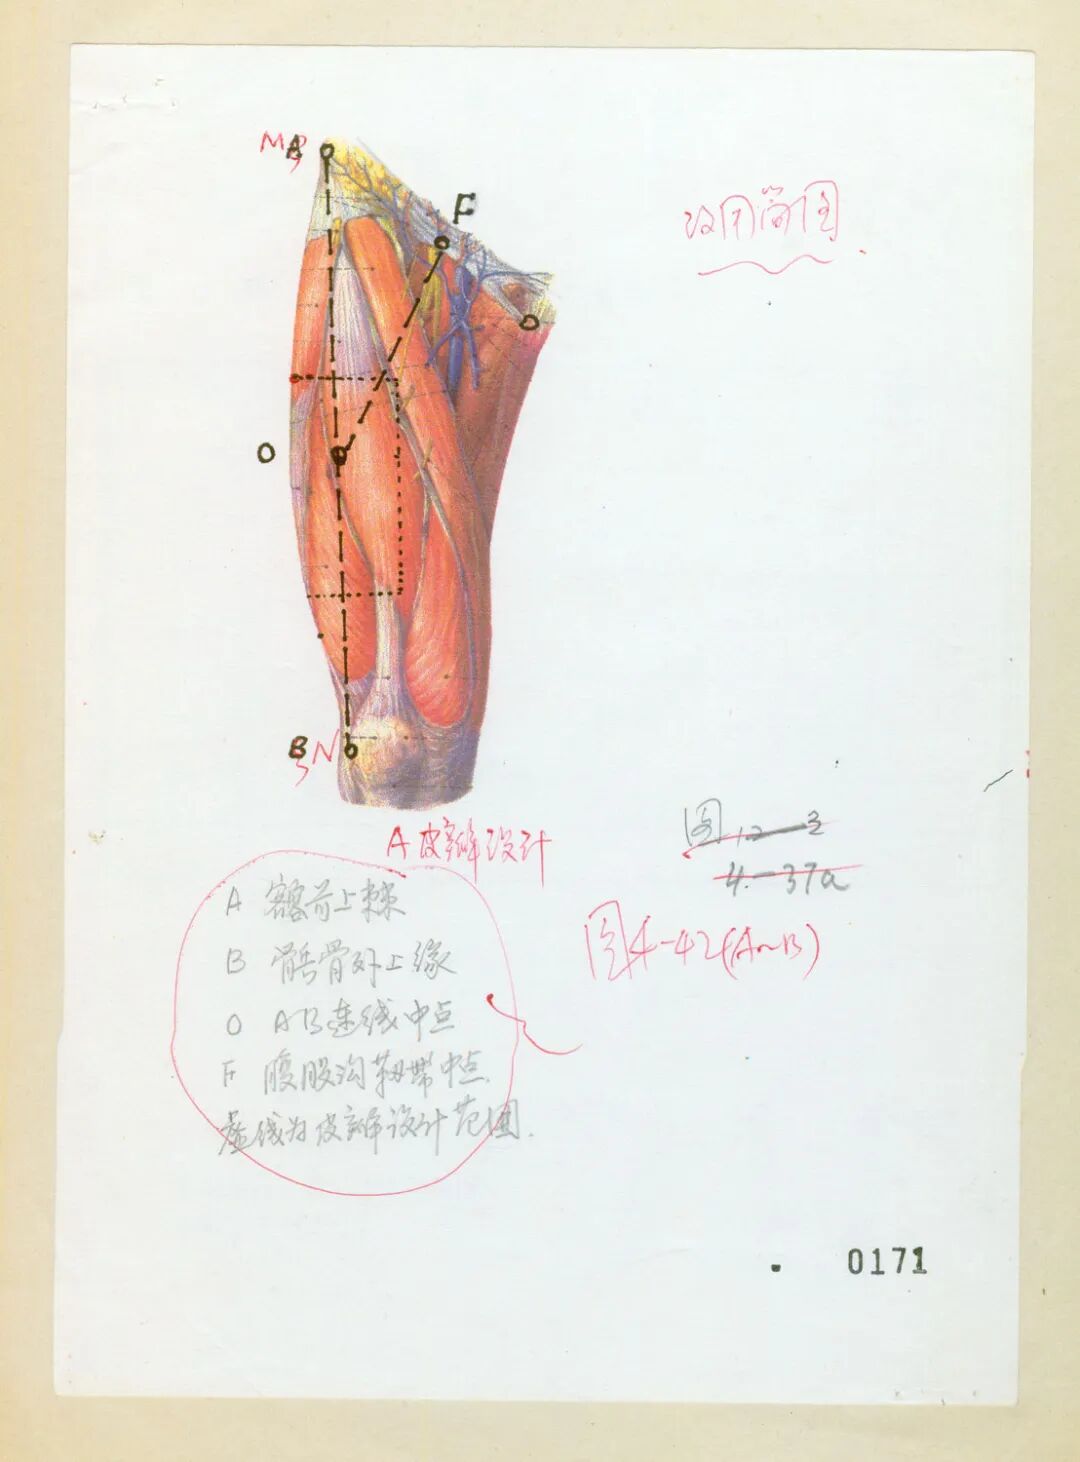 M A
F
改用简图
O
B N
A 皮瓣设计
图 12-3
4-37a
图4-42(A~B)
A 髂前上棘
B 髌骨外上缘
O A-B连线中点
F 腹股沟韧带中点
虚线为皮瓣设计范围.
0171